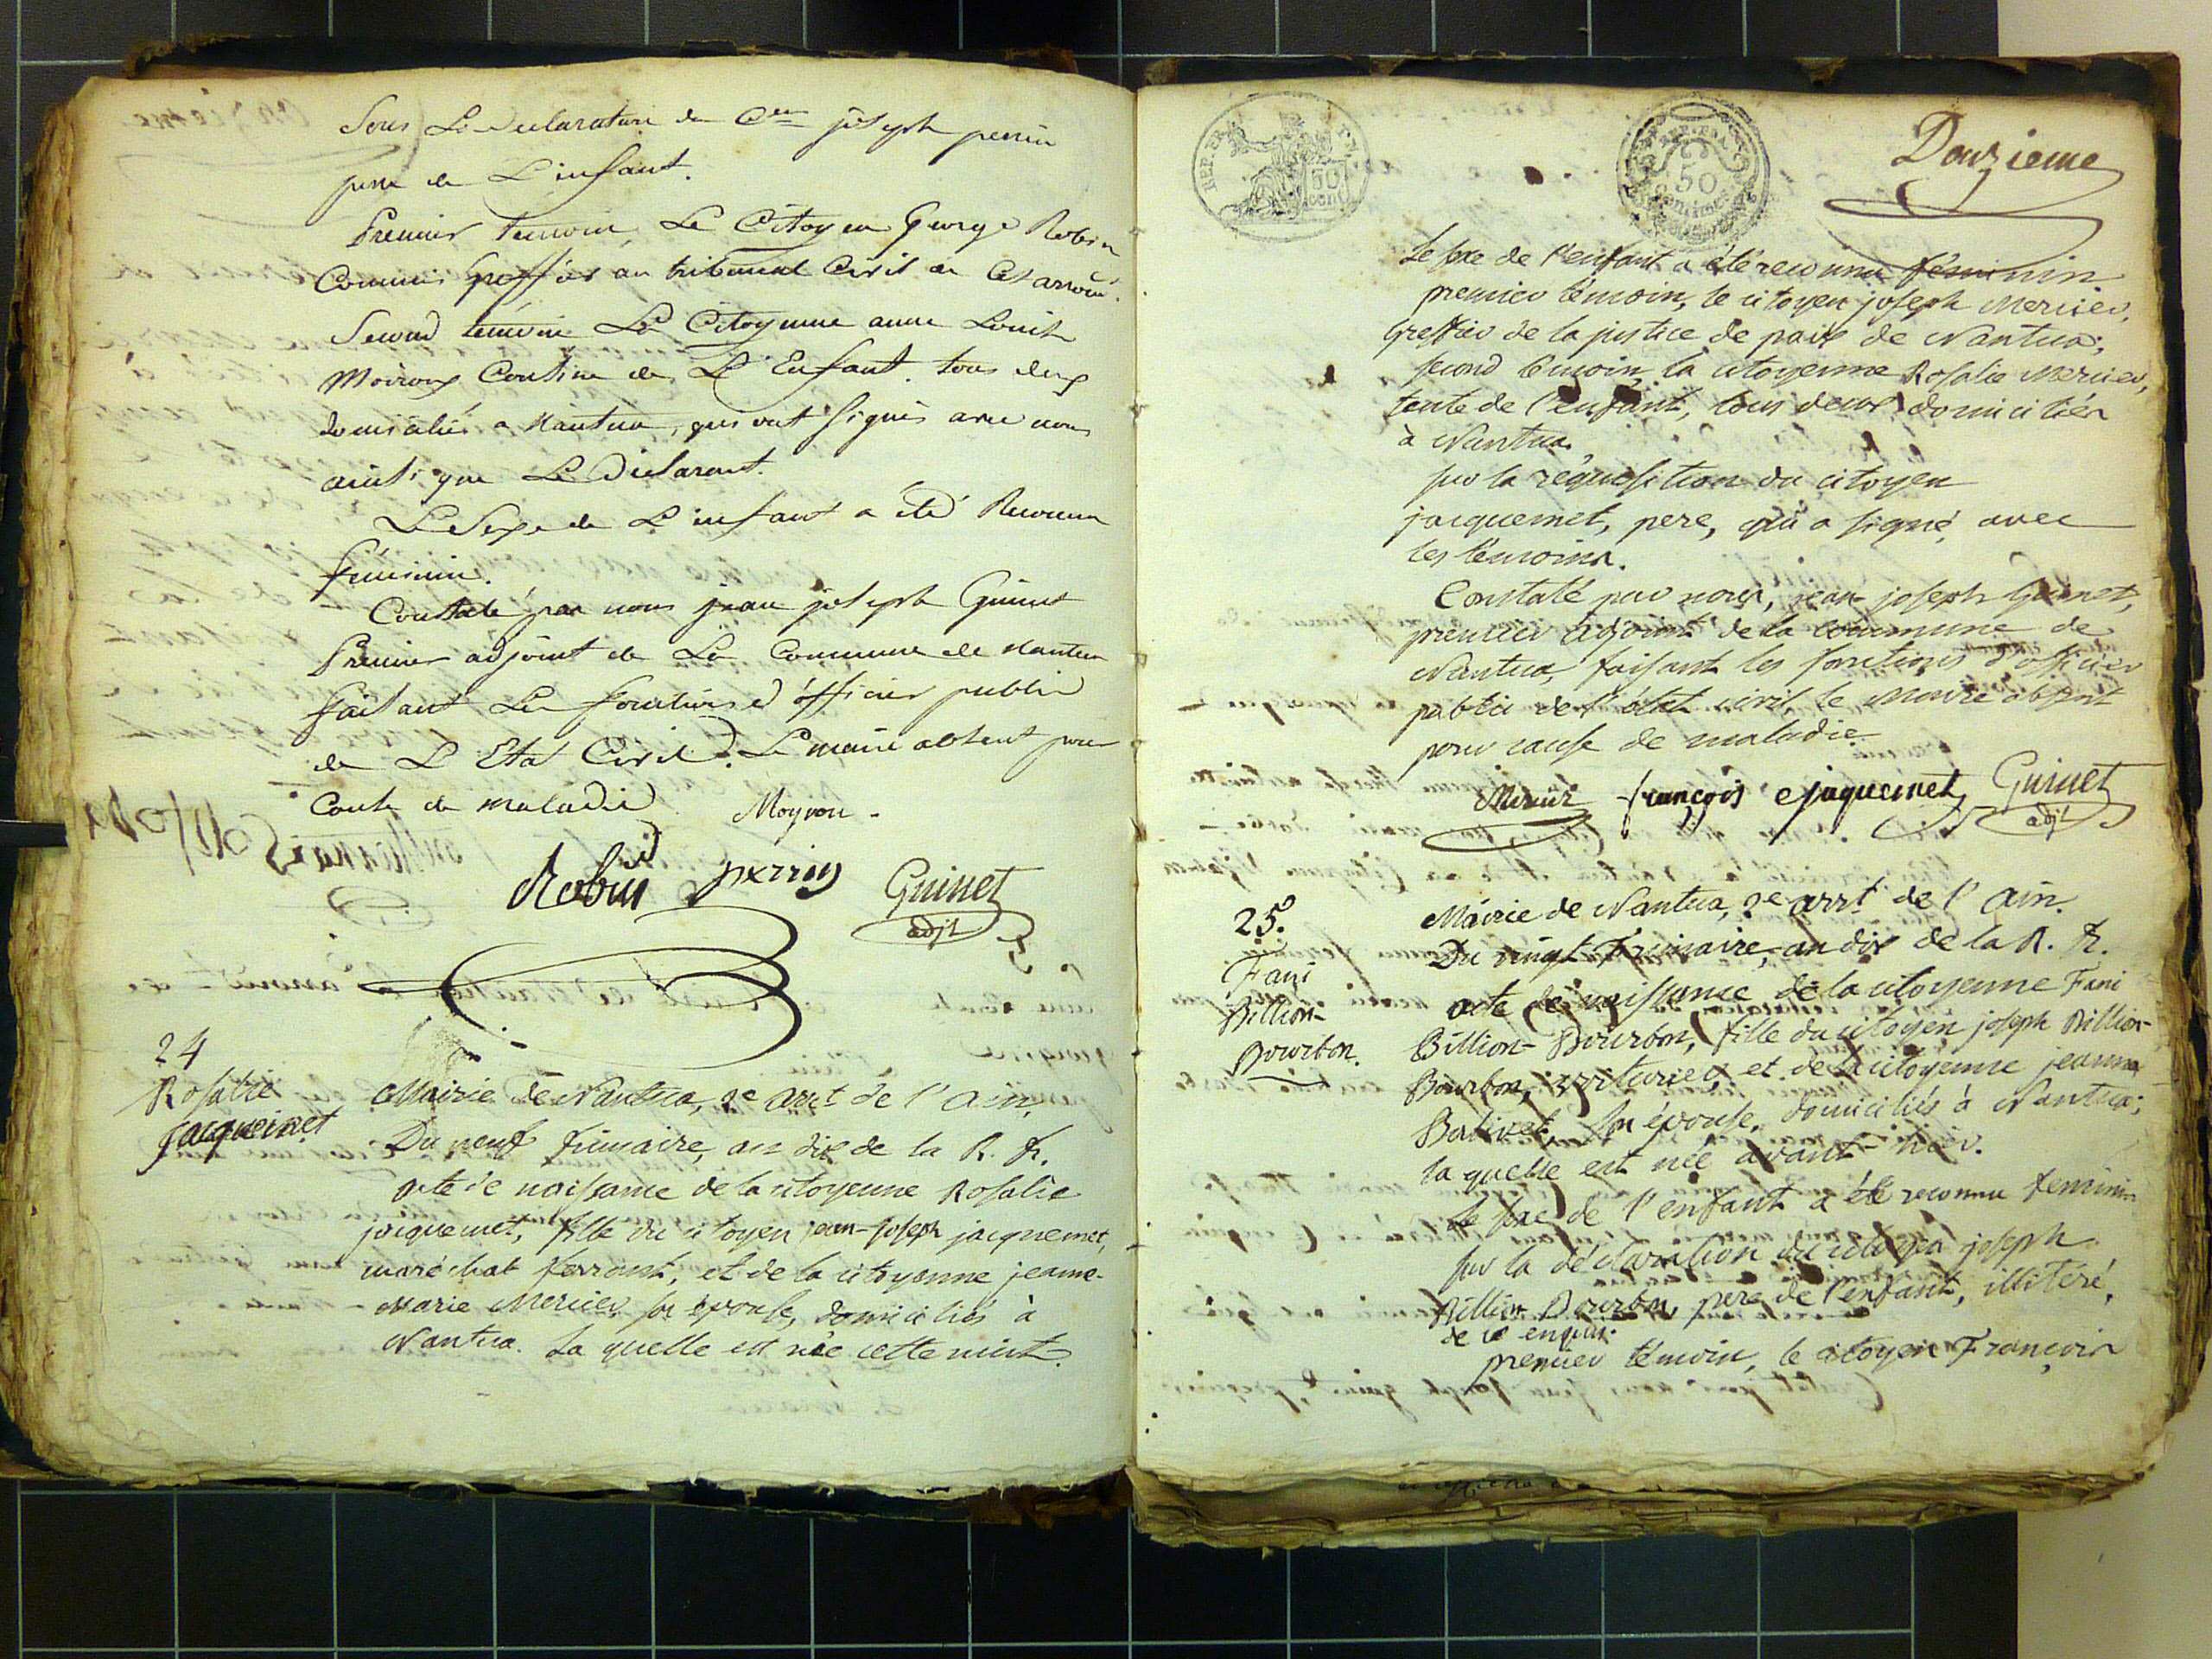 Sous La declaration du Cen joseph perrin
pere de L'infant.
Premier temoin, Le Citoyen George Robin
Commis Greffier au tribunal Civil de Cet arrond.
Second temoin La Citoyenne anne Louise
Moiroux Cousine de L'Enfant. tous deux
domiciliés a Nantua, qui ont signés avec nous
ainsi que Le Déclarant.
Le Sexe de L'infant a été Reconnu
féminin.
Constaté par nous jean joseph Guinet
Premier adjoint de La Commune de Nantua
faisant Les fonctions d'officier public
de L'Etat Civil. Le maire absent pour
Cause de maladie
Moyron
Robin perrin Guinet
adjt
24
Rosalie
jacquemet
Mairie de Nantua, 2e arrt de l'Ain.
Du neuf frimaire, an dix de la R. fr.
acte de naissance de la citoyenne Rosalie
jacquemet, fille du citoyen jean-joseph jacquemet,
maréchal ferrant, et de la citoyenne jeanne-
Marie Mercier son épouse, domiciliés à
Nantua. La quelle est née cette nuit.
REP. FRA.
50
cent
REP. FRA.
50
Centimes
Douzieme
Le sexe de l'enfant a été reconnu féminin
premier témoin, le citoyen joseph Mercier,
Greffier de la justice de paix de Nantua;
second témoin, la citoyenne Rosalie Mercier,
tante de l'enfant, tous deux domiciliés
à Nantua.
sur la réquisition du citoyen
jacquemet, pere, qui a signé, avec
les témoins.
Constaté par nous, jean-joseph Guinet,
premier adjoint de la commune de
Nantua, faisant les fonctions d'officier
public de l'état civil, le Maire absent
pour cause de maladie
Mercier françois jaquemet Guinet
adjt
25.
Fani
Billion-
Bourbon.
Mairie de Nantua, 2e arrt de l'Ain.
Du vingt Frimaire, an dix de la R. fr.
acte de naissance de la citoyenne Fani
Billion-Bourbon, fille du citoyen joseph Billion-
Bourbon, voiturier, et de la citoyenne jeanne
Balivet, son épouse, domiciliés à Nantua;
la quelle est née avant-hier.
Le sexe de l'enfant a été reconnu feminin
sur la déclaration du citoyen joseph
Billion Bourbon, pere de l'enfant, illitéré,
de ce enquis.
premier témoin, le citoyen François